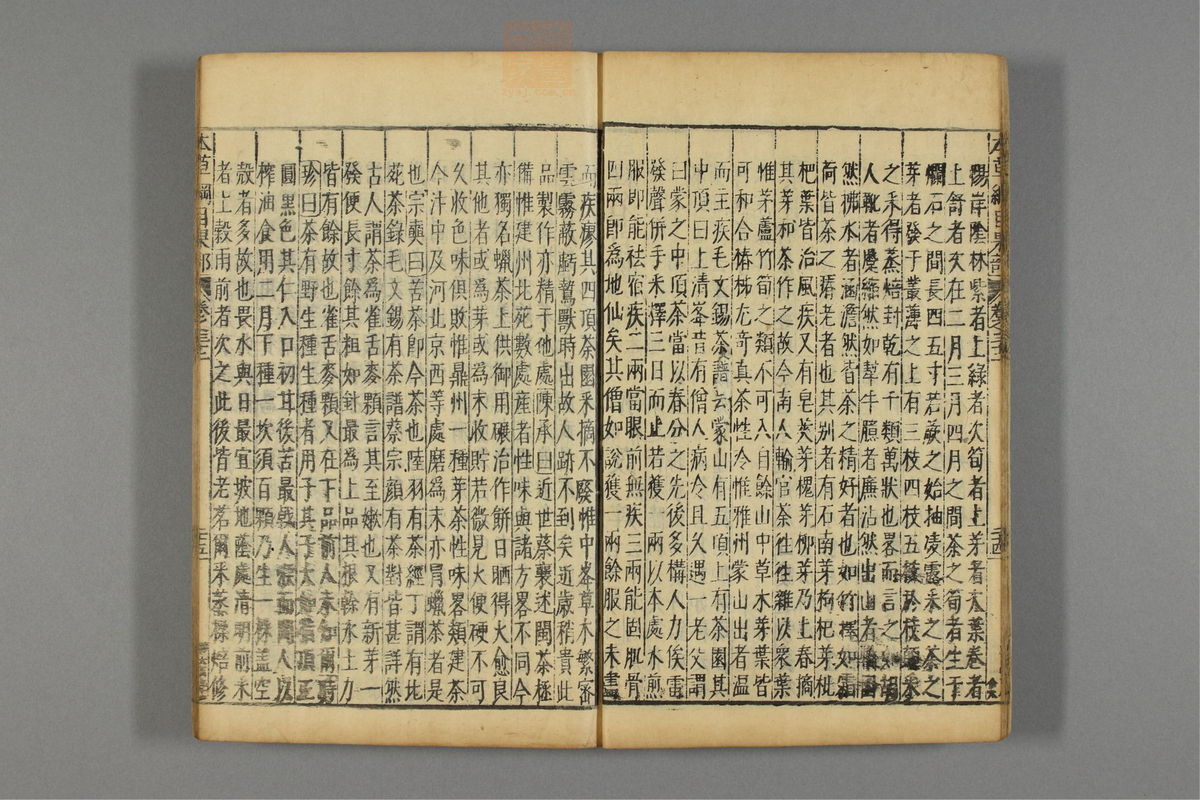 陽岸陰林紫者上綠者次筍者上芽者次葉卷者
上舒者次在二月三月四月之間茶之筍者生于
爛石之間長四五寸若蕨之始抽凌露采之茶之
芽者發于叢薄之上有三枝四枝五枝於枝顛采
之采得蒸焙封乾有千類萬狀也畧而言之如胡
人靴者蹙縮然如犎牛臆者廉沾然出山者輪囷
然拂水者涵澹然皆茶之精好者也如竹籜如霜
荷皆茶之瘠老者也其别者有石南芽枸杞芽枇
杷葉皆治風疾又有皂莢芽槐芽柳芽乃上春摘
其芽和茶作之故今南人輸官茶往往雜以衆葉
惟茅蘆竹筍之類不可入自餘山中草木芽葉皆
可和合椿柹尤奇真茶性冷惟雅州蒙山出者温
而主疾毛文錫茶譜云蒙山有五頂上有茶園其
中頂曰上清峯昔有僧人病冷且久遇一老父謂
曰蒙之中頂茶當以春分之先後多構人力俟雷
發聲併手采擇三日而止若獲一兩以本處水煎
服即能祛宿疾二兩當眼前無疾三兩能固肌骨
四兩即爲地仙矣其僧如說獲一兩餘服之未盡
而疾瘳其四頂茶園采摘不廢惟中峯草木繁密
雲霧蔽虧鷙獸時出故人跡不到矣近歲稍貴此
品製作亦精于他處陳承曰近世蔡襄述閩茶極
備惟建州北苑數處産者性味與諸方畧不同今
亦獨名蠟茶上供御用碾治作餅日晒得火愈良
其他者或爲芽或爲末收貯若微見火便硬不可
久收色味俱敗惟鼎州一種芽茶性味畧類建茶
今汴中及河北京西等處磨爲末亦冐蠟茶者是
也宗奭曰苦茶即今茶也陸羽有茶經丁謂有北
苑茶錄毛文錫有茶譜蔡宗顔有茶對皆甚詳然
古人謂茶爲雀舌麥顆言其至嫩也又有新芽一
發便長寸餘其粗如針最爲上品其根幹水土力
皆有餘故也雀舌麥顆又在下品前人未知爾時
珍曰茶有野生種生種者用子其子大如指頂正
圓黑色其仁入口初甘後苦最戟人喉而閩人以
榨油食用二月下種一坎須百顆乃生一株蓋空
殼者多故也畏水與日最宜坡地蔭處清明前采
者上穀雨前者次之此後皆老茗爾采蒸揉焙修
本草綱目果部
卷之三十二
二十四
本草綱目果部
卷之三十二
二十五